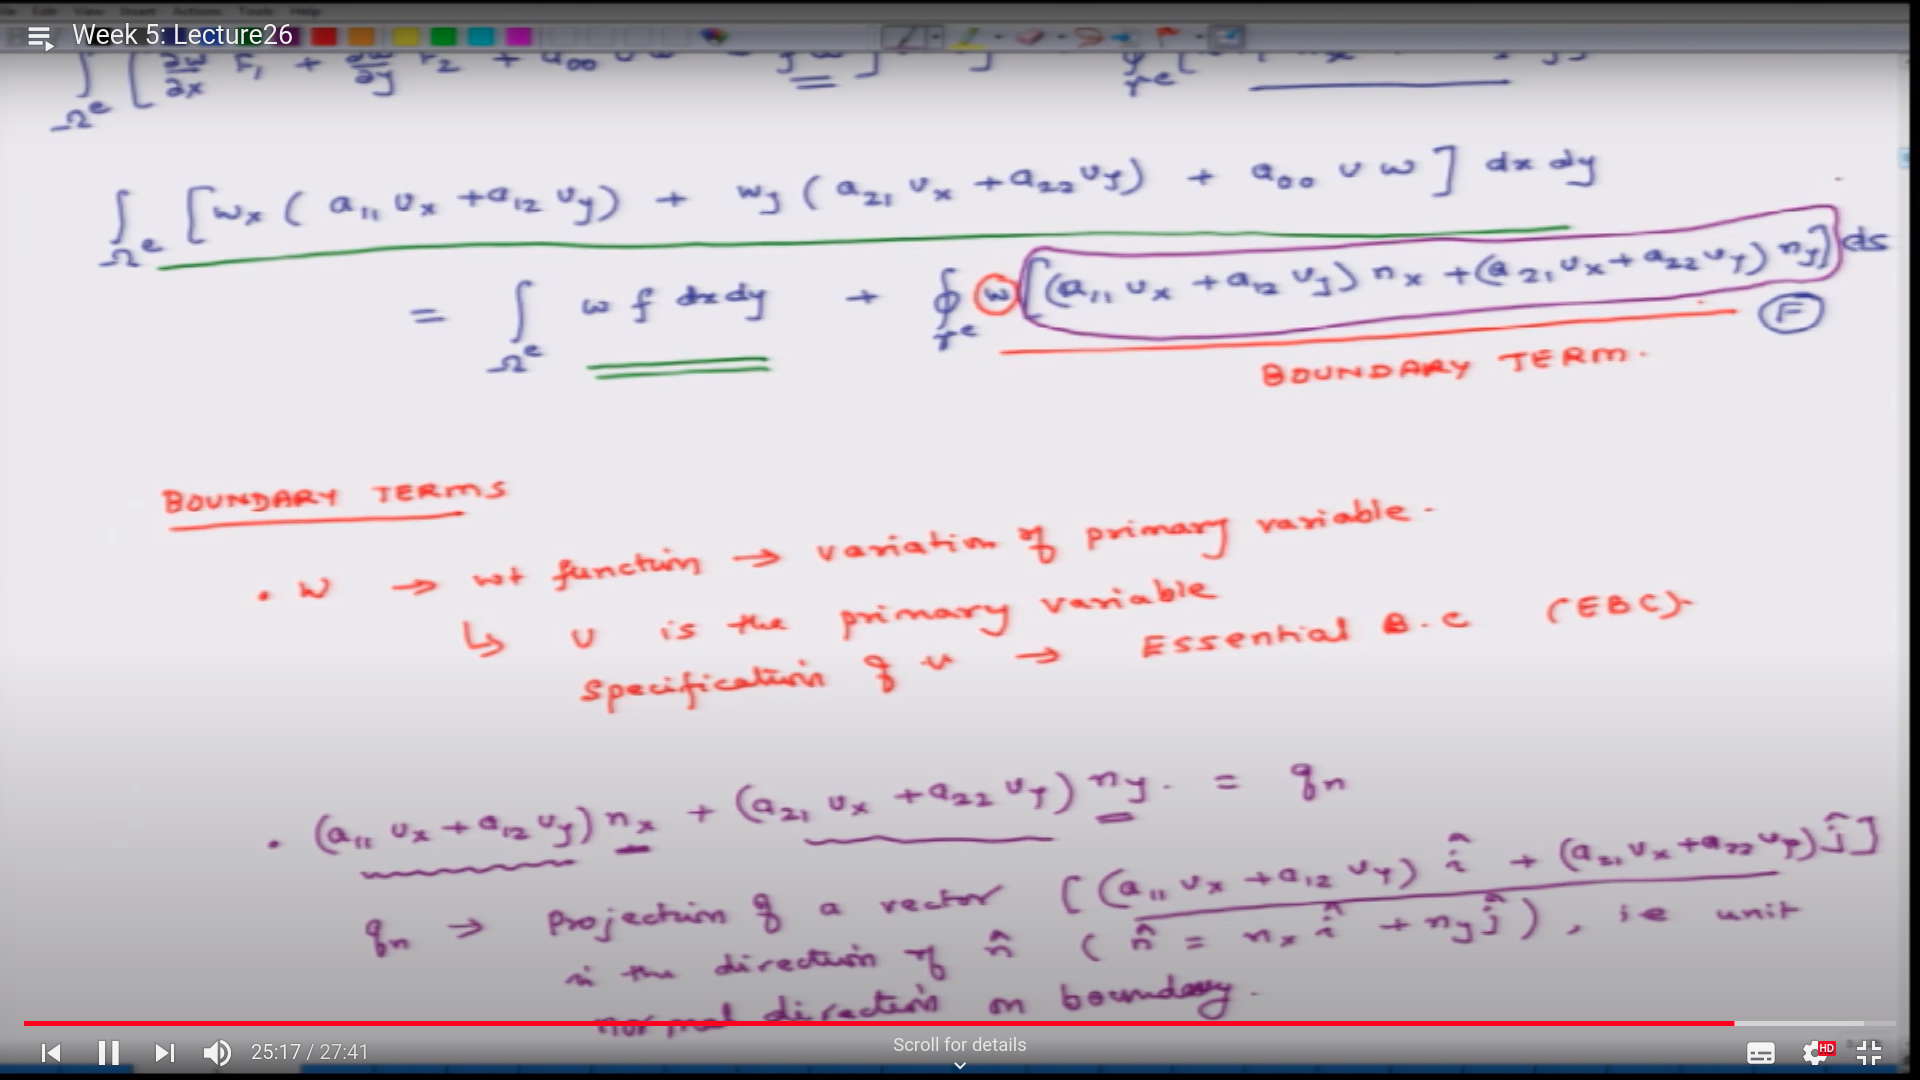 Week 5: Lecture26
∫Ωe [ ∂w/∂x F1 + ∂w/∂y F2 + a00 u w -
∫Ωe [wx ( a11 ux + a12 uy) + wy ( a21 ux + a22 uy) + a00 u w ] dx dy
= ∫Ωe w f dx dy + ∮Γe w [(a11 ux + a12 uy) nx + (a21 ux + a22 uy) ny] ds
F
BOUNDARY TERM.
BOUNDARY TERMS
• W → wt function → variation of primary variable.
↳ u is the primary variable
Specification of u → Essential B.C (EBC).
• (a11 ux + a12 uy) nx + (a21 ux + a22 uy) ny. = qn
qn → Projection of a vector [(a11 ux + a12 uy) î + (a21 ux + a22 uy) ĵ]
in the direction of n̂ ( n̂ = nx î + ny ĵ ), ie unit
normal direction on boundary.
25:17 / 27:41
Scroll for details
HD